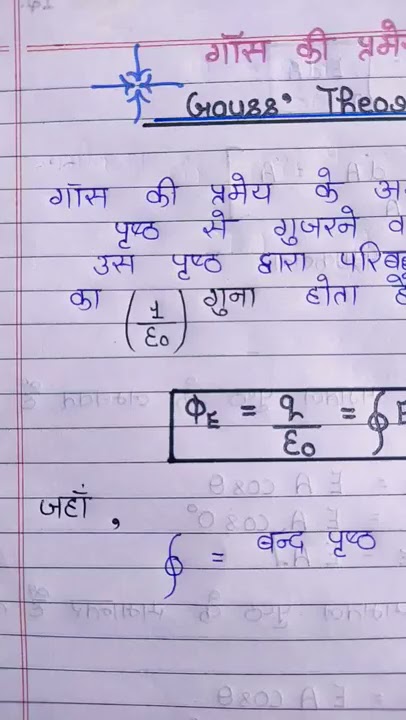 गॉस की प्रमे
Gauss' Theo
गॉस की प्रमेय के अ
पृष्ठ से गुजरने व
उस पृष्ठ द्वारा परिब
का (1/ε₀) गुना होता है
Φ_E = q/ε₀ = ∮ E
जहाँ,
∮ = बन्द पृष्ठ